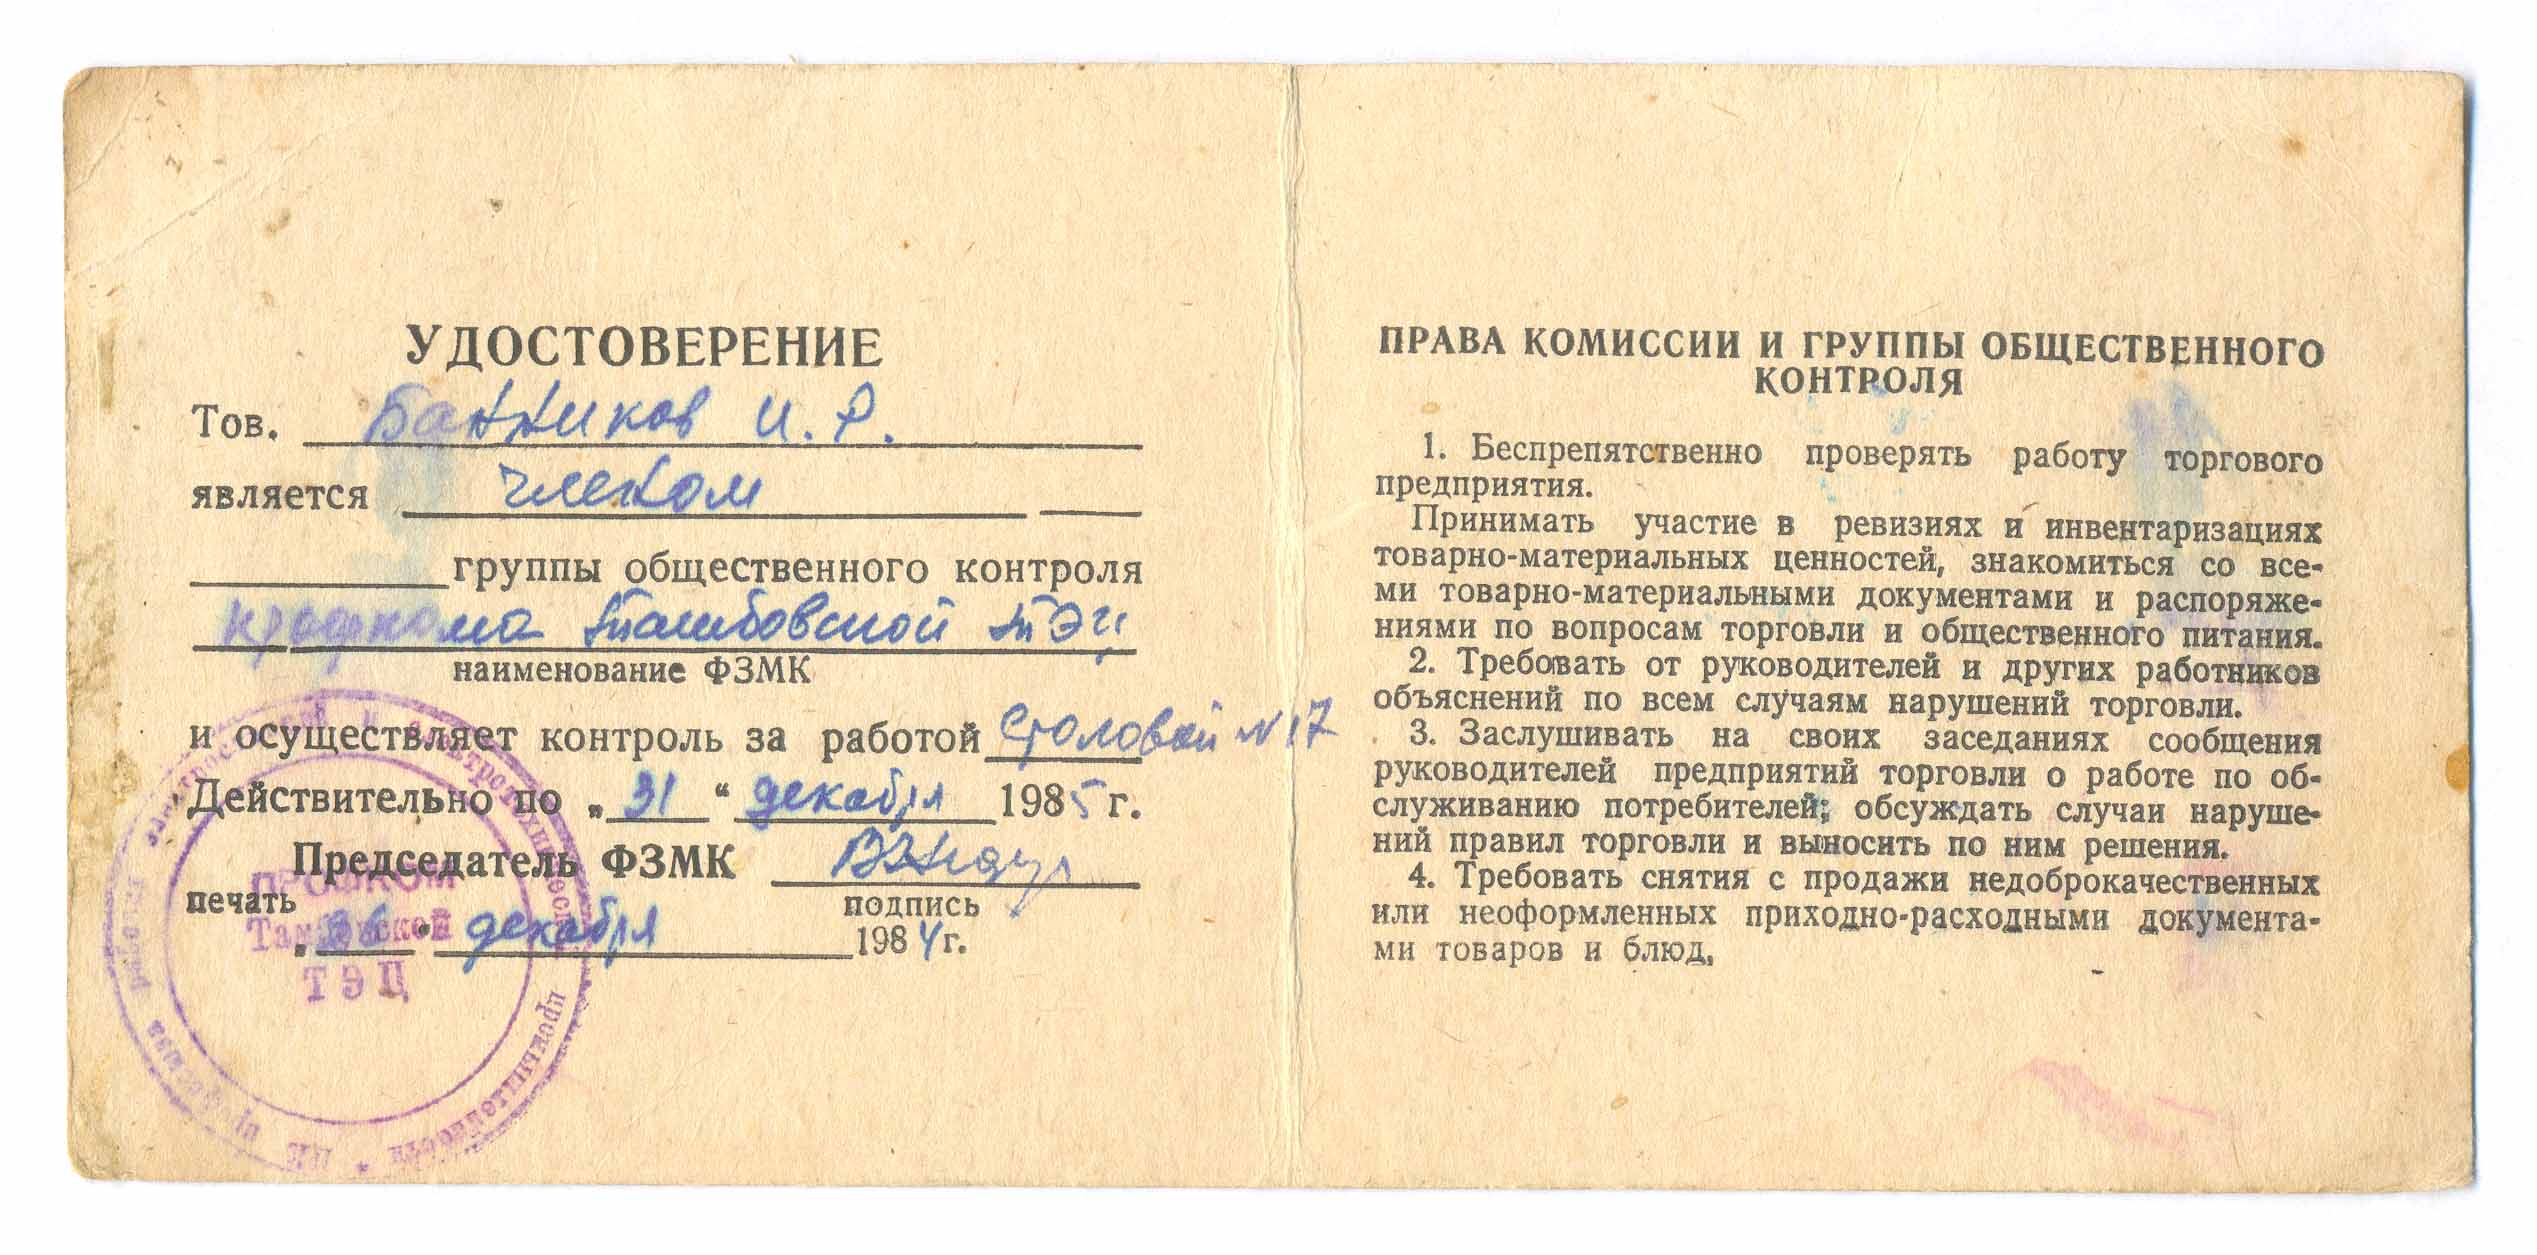 УДОСТОВЕРЕНИЕ
Тов. Банников И. Р.
является членом
группы общественного контроля
профкома Тамбовской ТЭЦ
наименование ФЗМК
и осуществляет контроль за работой столовой N 17
Действительно по „31“ декабря 1985 г.
Председатель ФЗМК
печать
подпись
„26“ декабря 1984 г.
ПРОФКОМ
Тамбовской
ТЭЦ
электростанций и электротехнической промышленности * ЦК профсоюза рабочих
ПРАВА КОМИССИИ И ГРУППЫ ОБЩЕСТВЕННОГО
КОНТРОЛЯ
1. Беспрепятственно проверять работу торгового
предприятия.
Принимать участие в ревизиях и инвентаризациях
товарно-материальных ценностей, знакомиться со все-
ми товарно-материальными документами и распоряже-
ниями по вопросам торговли и общественного питания.
2. Требовать от руководителей и других работников
объяснений по всем случаям нарушений торговли.
3. Заслушивать на своих заседаниях сообщения
руководителей предприятий торговли о работе по об-
служиванию потребителей; обсуждать случаи наруше-
ний правил торговли и выносить по ним решения.
4. Требовать снятия с продажи недоброкачественных
или неоформленных приходно-расходными документа-
ми товаров и блюд.